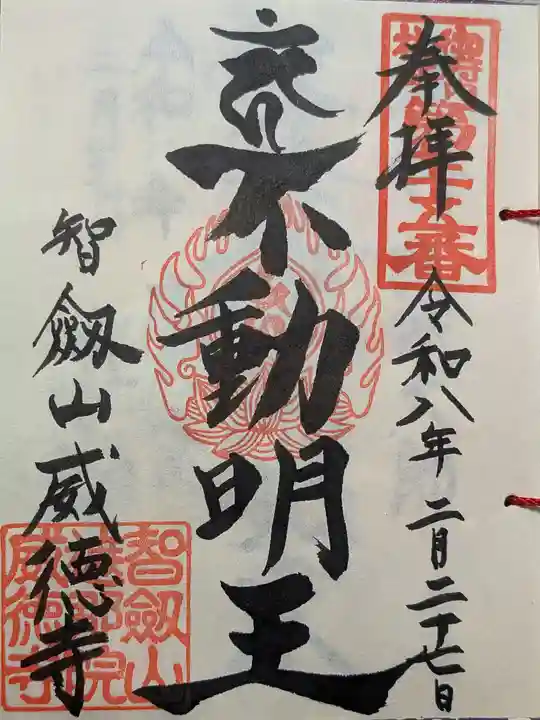 奉拝
令和八年二月二十七日
不動明王
智劔山威徳寺
智劔山
威徳寺